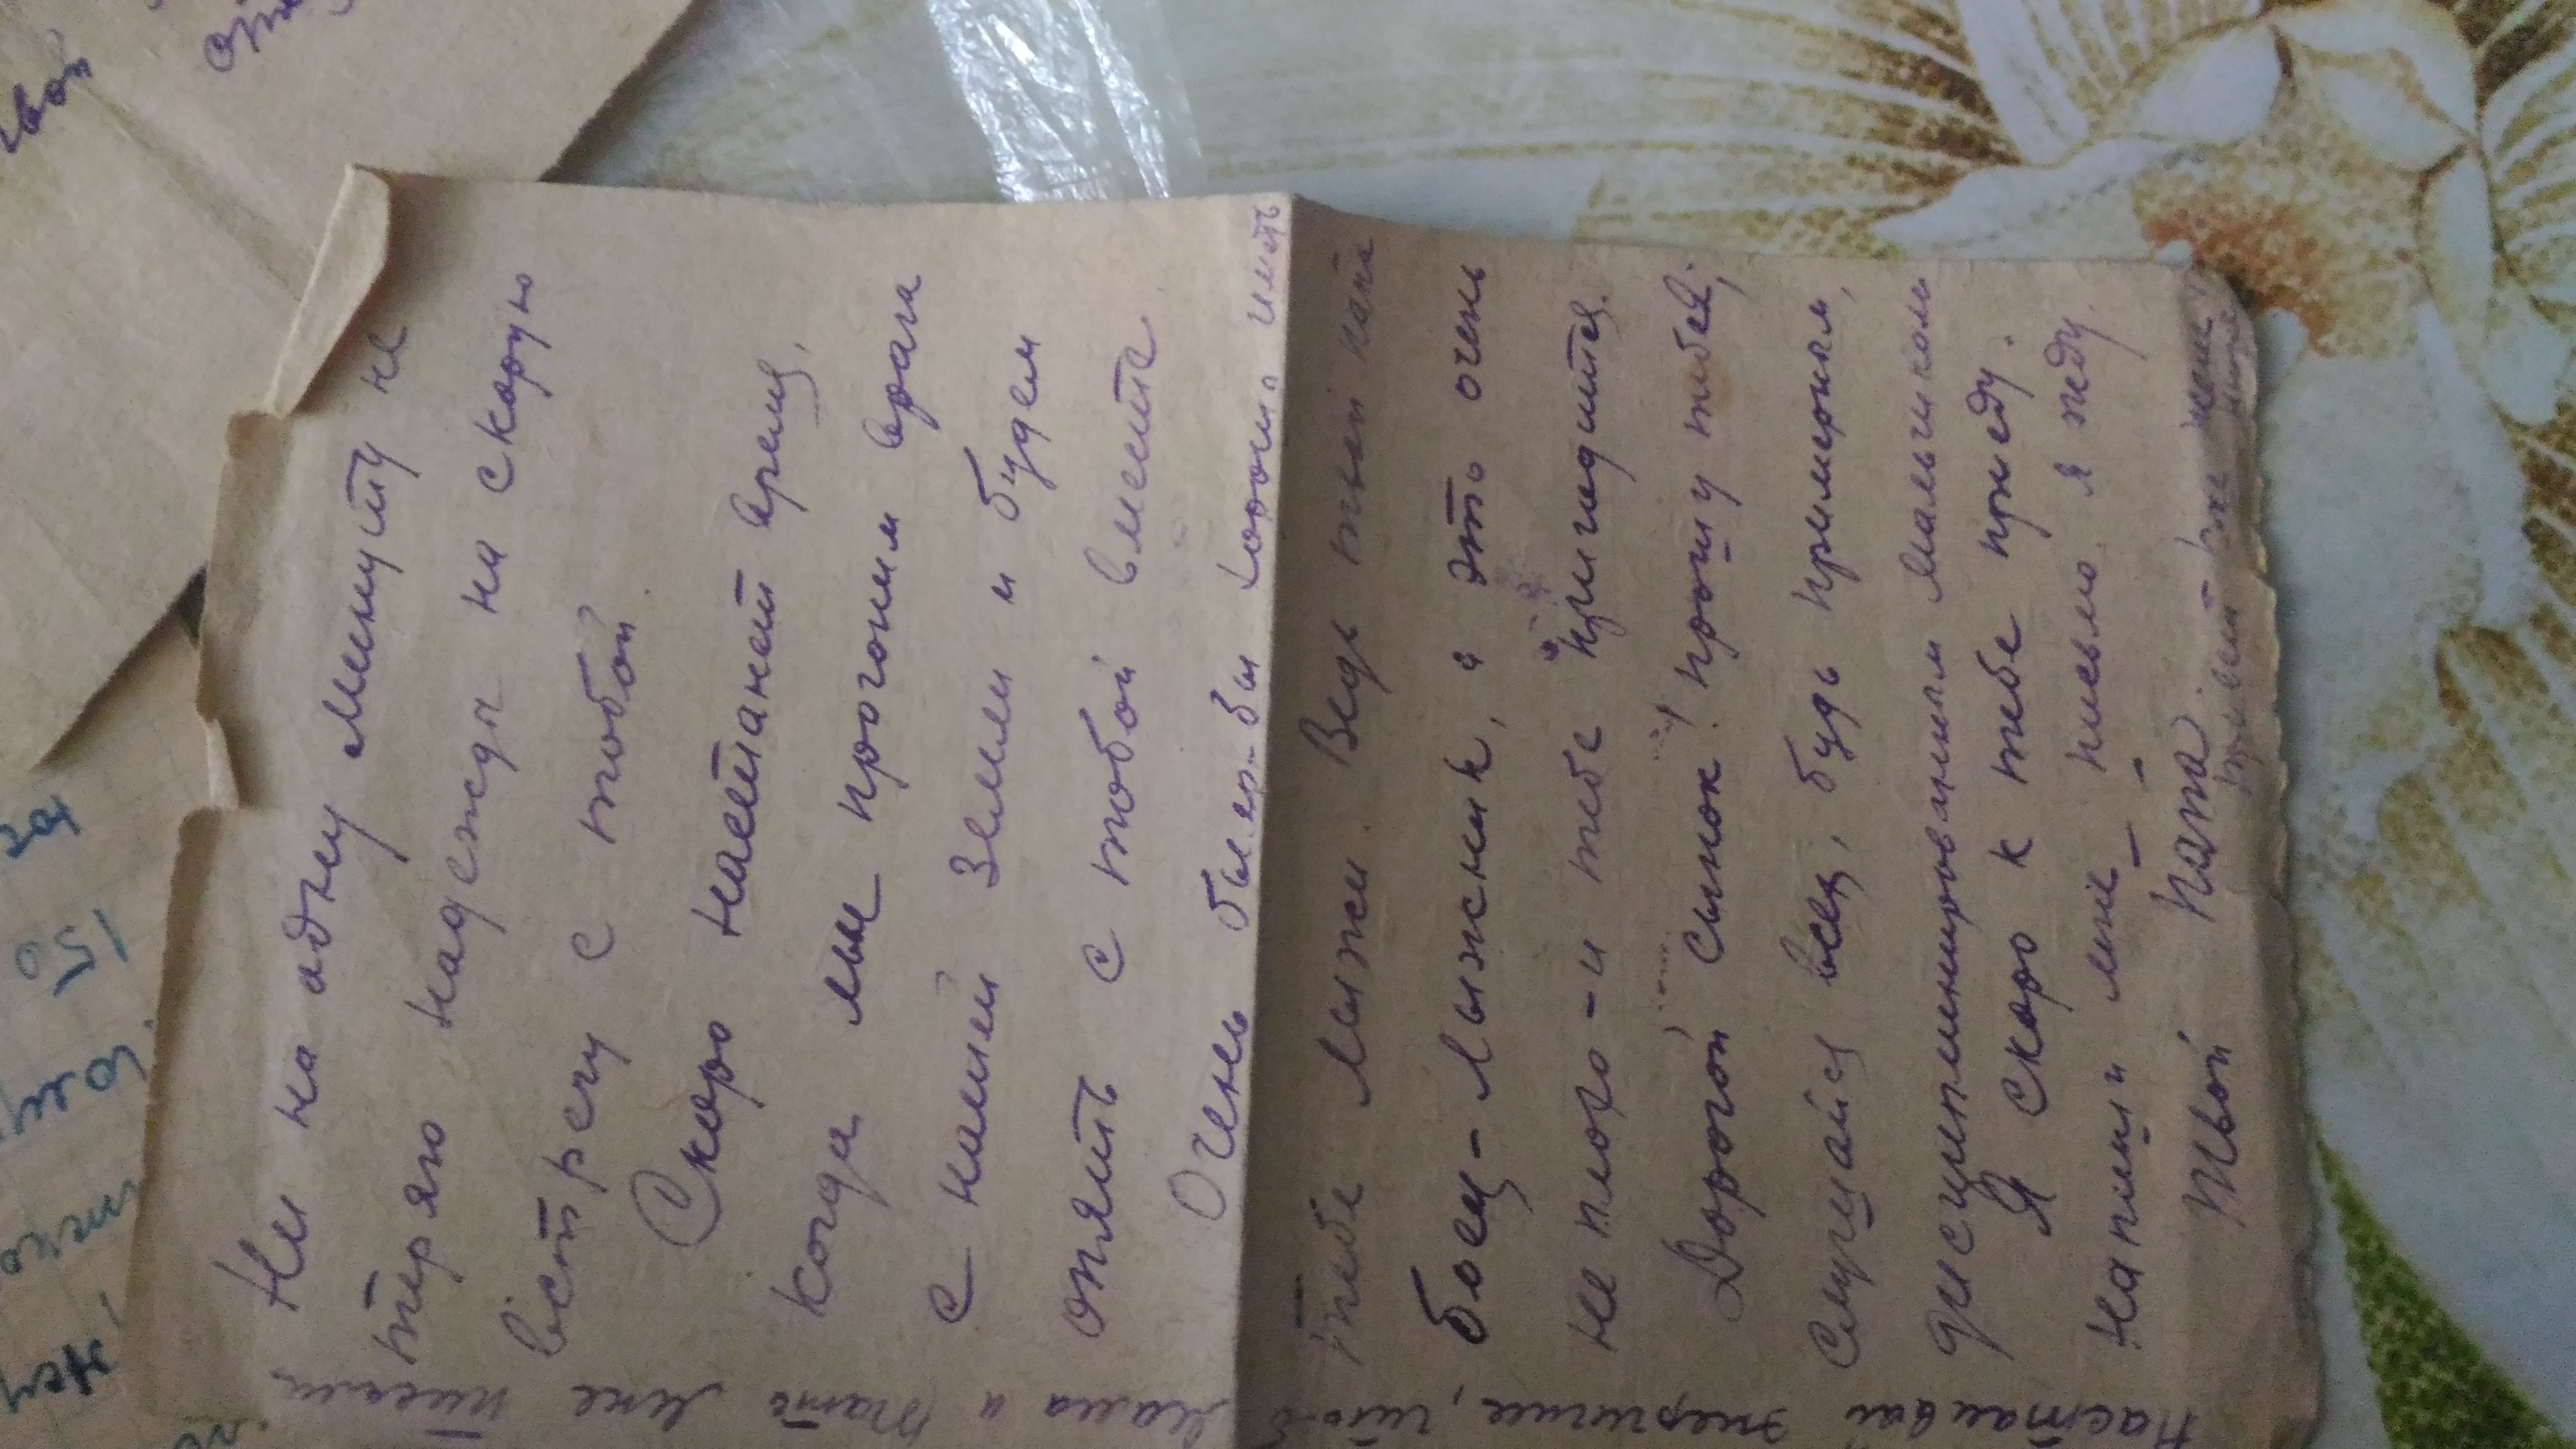 Ни на одну минуту не
теряю надежды на скорую
встречу с тобой
Скоро настанет время,
когда мы прогоним врага
с нашей земли и будем
опять с тобой вместе
Очень было-бы хорошо иметь
тебе лыжи. Ведь твой папа
боец-лыжник, а это очень
не плохо-и тебе пригодится.
Дорогой сынок! прошу тебя,
слушайся всех, будь примерным,
дисциплинированным мальчиком
Я скоро к тебе приеду.
Напиши мне письмо. я жду.
Твой папа.
Настаивай энергичнее, чтоб
мама и тать мне писали
150